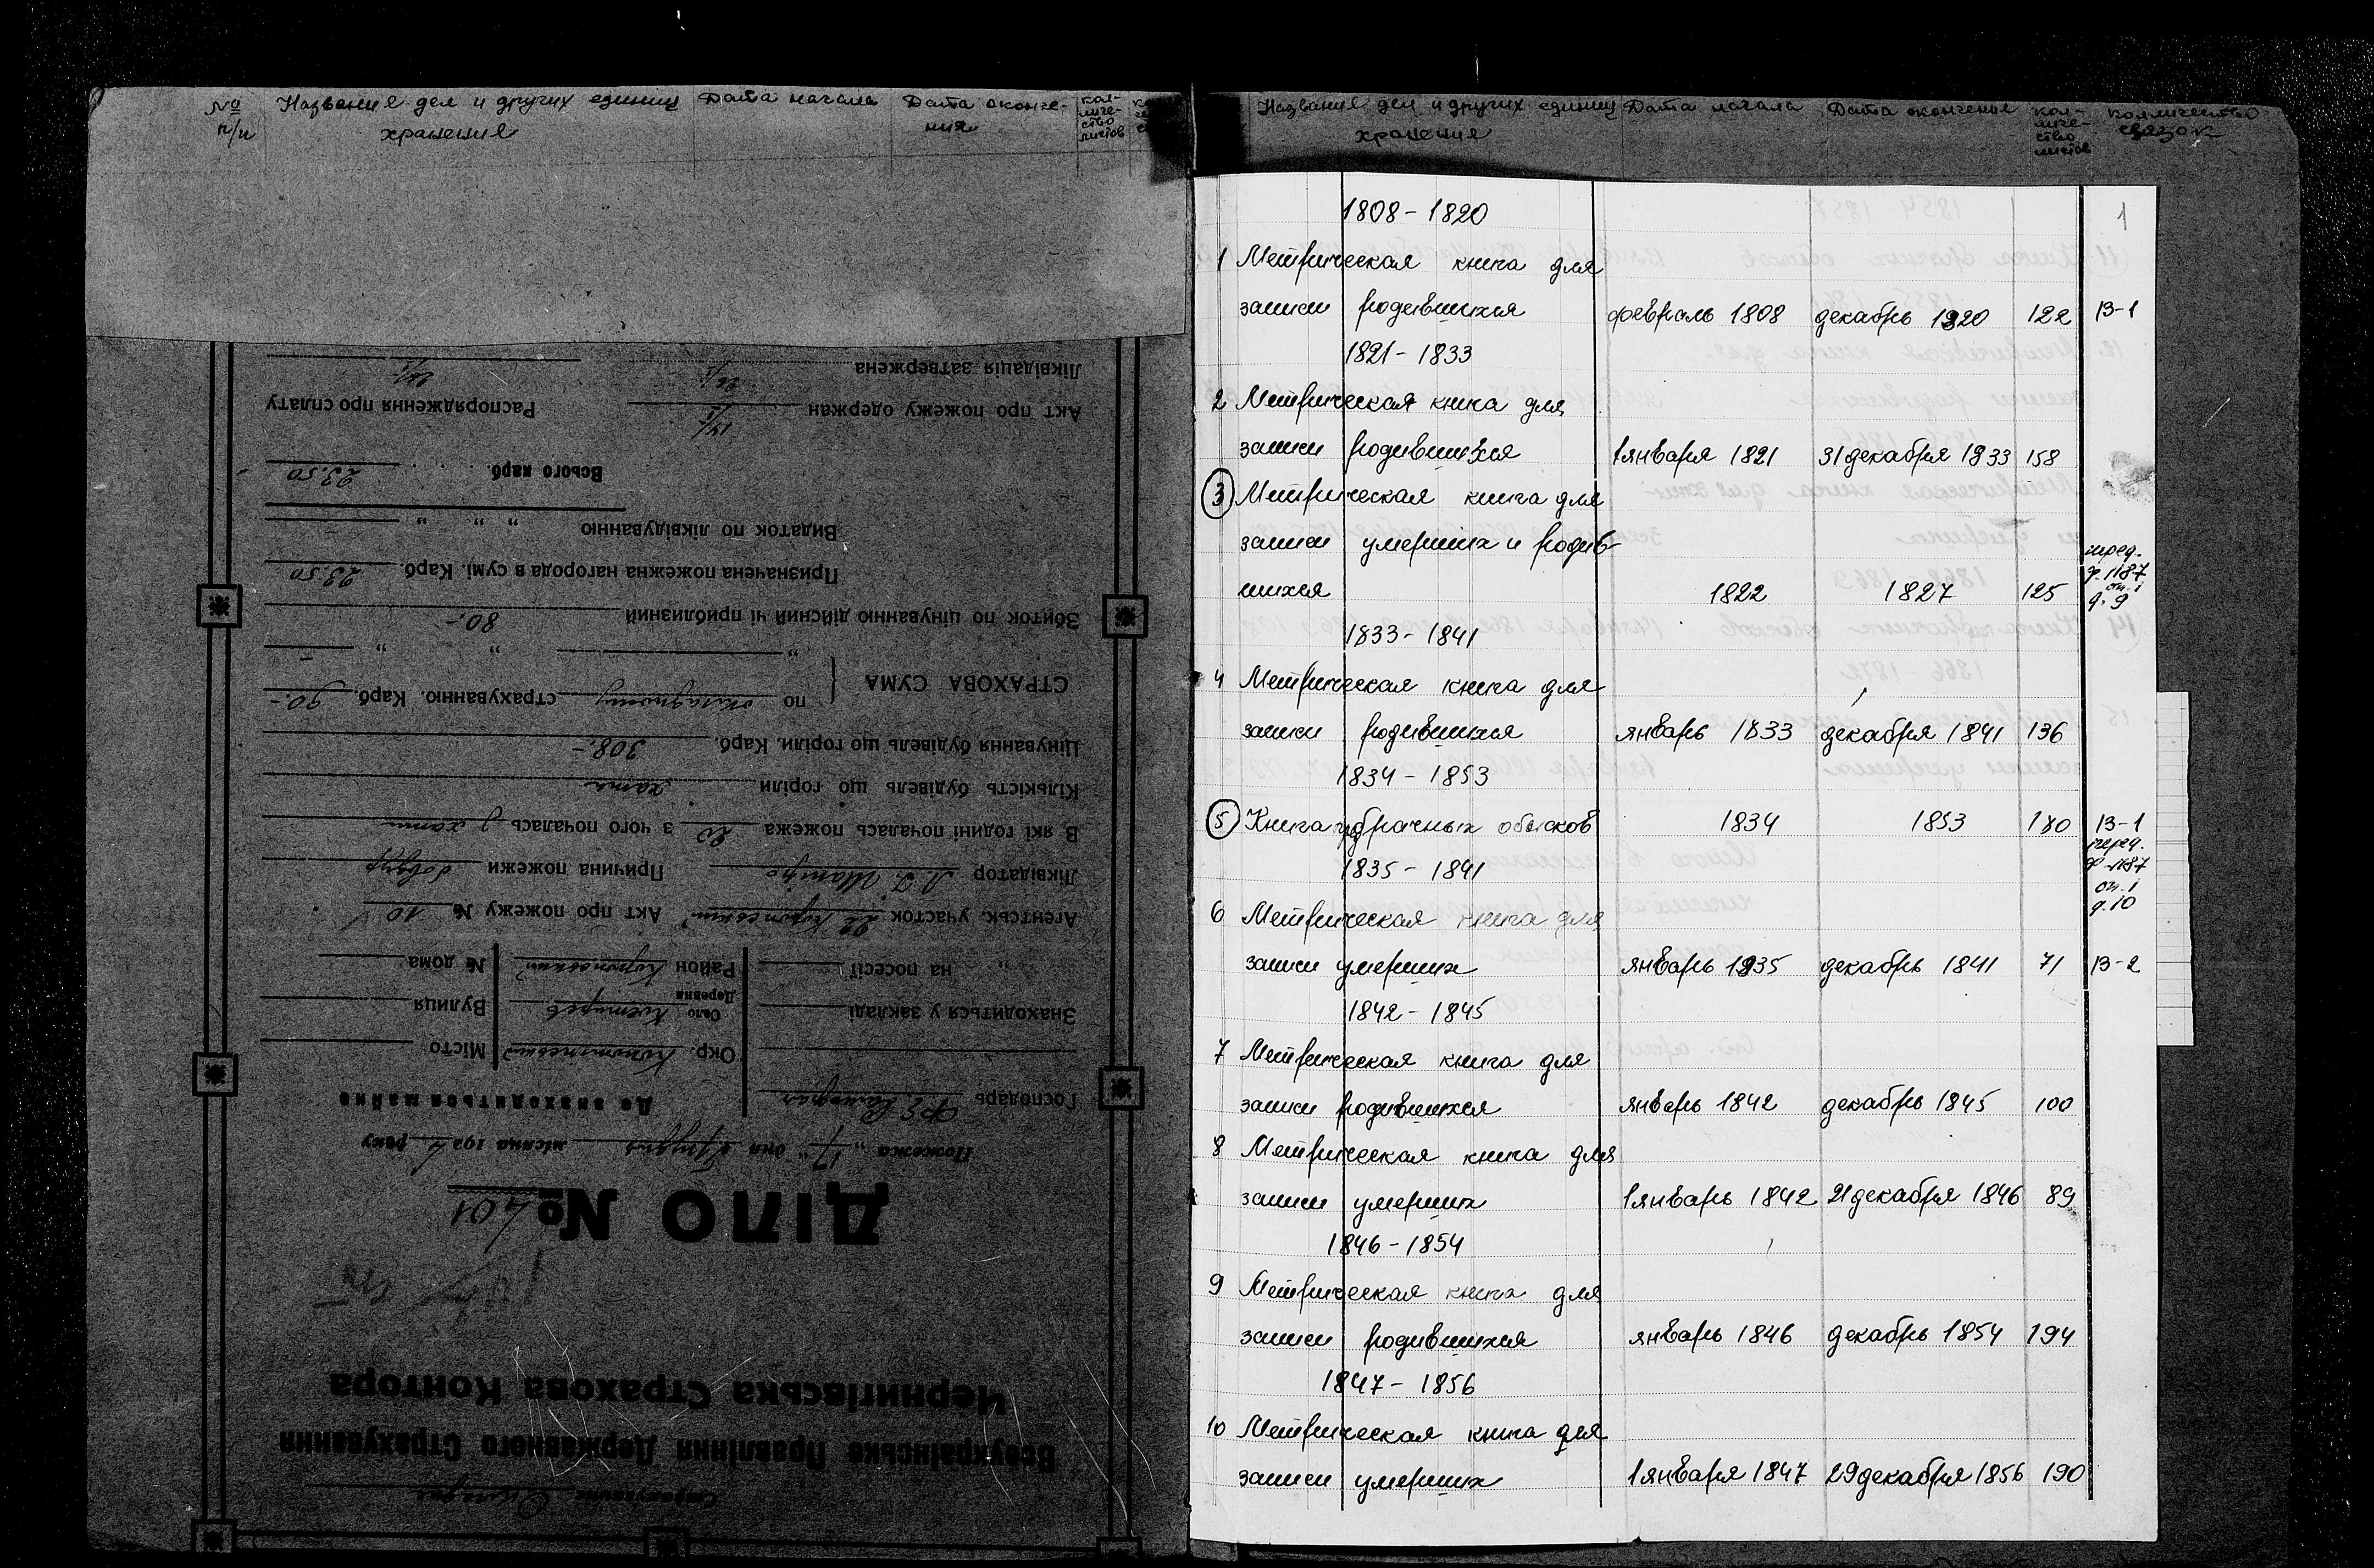 № п/п Название дел и других единиц хранения Дата начала Дата оконче-ния кол-личе-ство листов
Название дел и других единиц хранения Дата начала Дата окончения кол-личе-ство листов колличество связок
1
1808 - 1820
1 Метрическая книга для
записи родившихся февраль 1808 декабрь 1820 122 В-1
1821 - 1833
2 Метрическая книга для
записи родившихся 1 января 1821 31 декабря 1833 158
3 Метрическая книга для
записи умерших и родив-
шихся 1822 1827 125 перед. ф. 1187 оп. 1 д. 9
1833 - 1841
4 Метрическая книга для
записи родившихся январь 1833 декабря 1841 136
1834 - 1853
5 Книга брачных обысков 1834 1853 180 В-1
перед.
ф-1187
оп. 1
д. 10
1835 - 1841
6 Метрическая книга для
записи умерших январь 1835 декабрь 1841 71 В-2
1842 - 1845
7 Метрическая книга для
записи родившихся январь 1842 декабрь 1845 100
8 Метрическая книга для
записи умерших 1 январь 1842 21 декабря 1846 89
1846 - 1854
9 Метрическая книга для
записи родившихся январь 1846 декабрь 1854 194
1847 - 1856
10 Метрическая книга для
записи умерших 1 января 1847 29 декабря 1856 190
Всеукраїнське Правління Державного Страхування
Чернигівська Страхова Контора
ДІЛО № 401
Пожежа „17" дня Грудня місяця 192 року
Де знаходиться майно
Господарь
Окр. Конотопський Місто
Знаходиться у закладі Село Деревня Вулиця
„ на посесії Район Коропський № дома
Агентськ. участок 22 Коропський Акт про пожежу № 10
Ліквідатор Причина пожежи
В які годині почалась пожежа 20 з чого почалась з хати
Кількість будівель що горіли хата
Цінування будівель що горіли. Карб. 308.-
СТРАХОВА СУМА по окладному страхуванню. Карб. 90.-
„ „ „
Збиток по цінуванню дійсний чі приблизний 80.-
Призначена пожежна нагорода в сумі. Карб. 23.50
Видаток по ліквідуванню „ „ „
Всього карб. 23.50
Акт про пожежу одержан Распорядження про сплату
Ліквідація затвержена